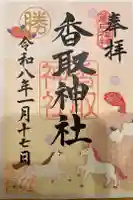 奉拝
香取神社
令和八年一月十七日
勝